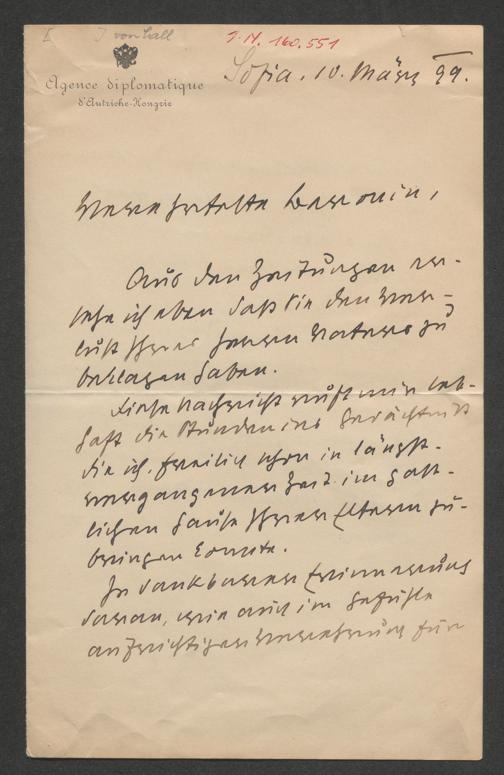 J von Call
I.N. 160.551
Agence diplomatique
d'Autriche-Hongrie
Sofia, 10. März 99.
Verehrteste Baronin,
Aus den Zeitungen er-
sehe ich eben daß Sie den Ver-
lust Ihres Herrn Vaters zu
beklagen haben.
Diese Nachricht ruft mir leb-
haft die Stunden ins Gedächtniß
die ich, freilich schon in längst-
vergangener Zeit im gast-
lichen Hause Ihrer Eltern zu-
bringen konnte.
In dankbarer Erinnerung
daran, wie auch im Gefühle
aufrichtiger Verehrung für